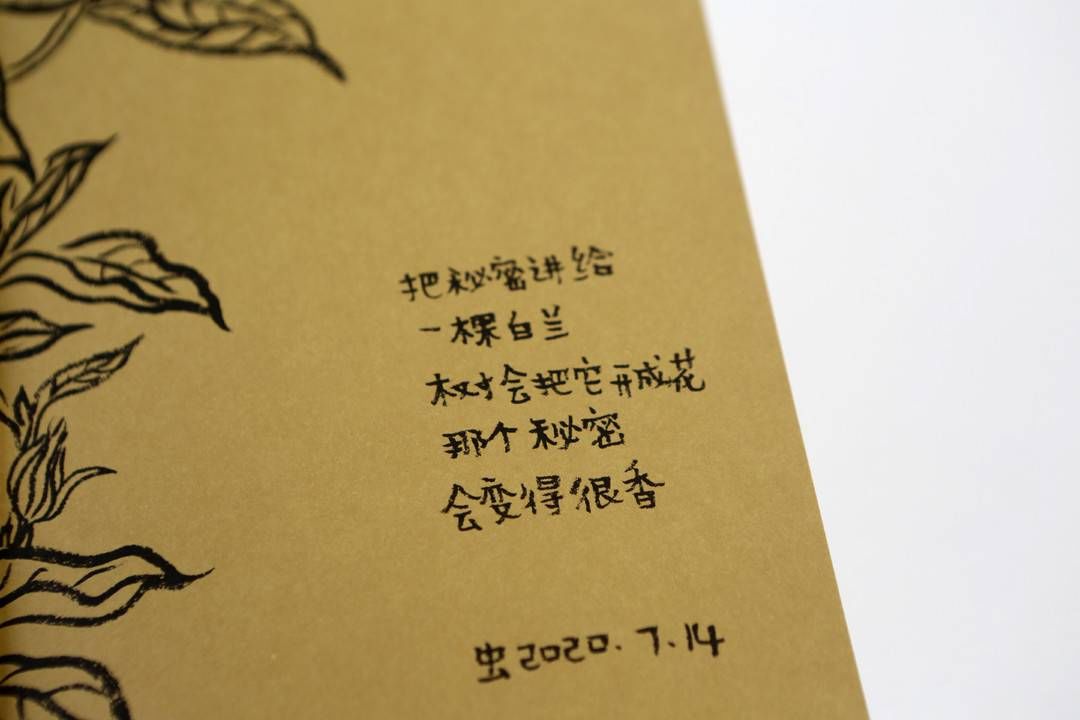 把秘密讲给
一棵白兰
树会把它开成花
那个秘密
会变得很香
虫2020.7.14